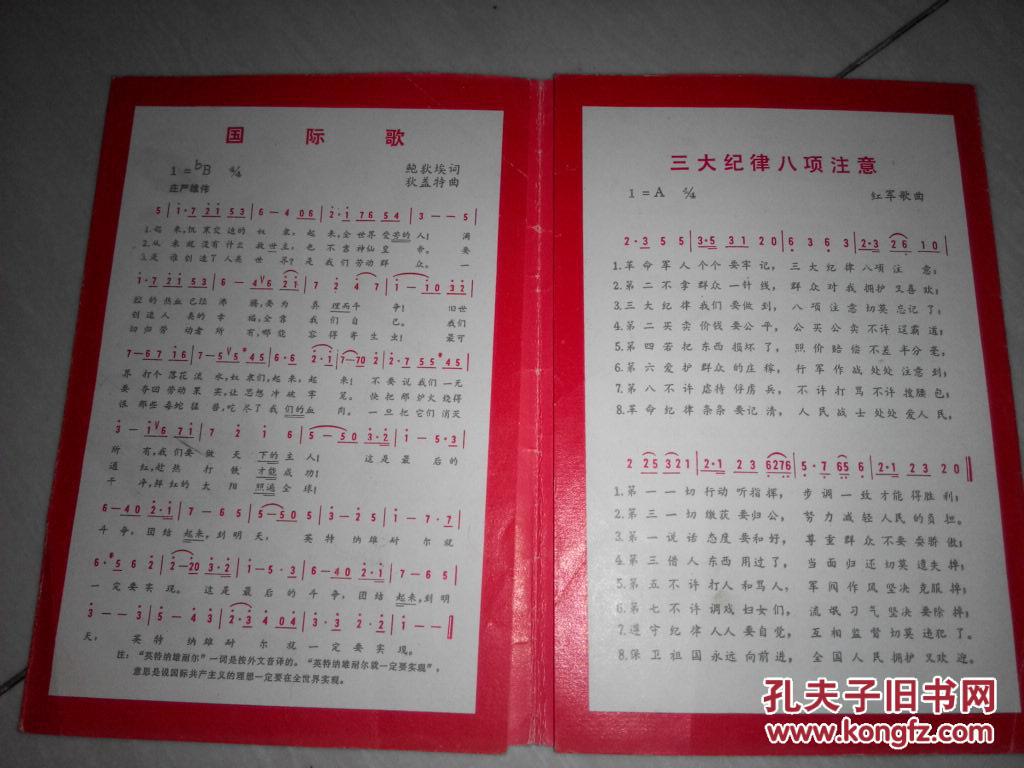 国 际 歌
1 = ♭B 4/4
鲍狄埃词
狄盖特曲
庄严雄伟
1.起来,饥寒交迫的奴隶,起来,全世界受苦的人!满
2.从来就没有什么救世主,也不靠神仙皇帝。要
3.是谁创造了人类世界?是我们劳动群众。一
腔的热血已经沸腾,要为真理而斗争!旧世
创造人类的幸福,全靠我们自己。我们
切归劳动者所有,哪能容得寄生虫!最可
界打个落花流水,奴隶们,起来,起来!不要说我们一无
要夺回劳动果实,让思想冲破牢笼。快把那炉火烧得
恨那些毒蛇猛兽,吃尽了我们的血肉。一旦把它们消灭
所有,我们要做天下的主人!这是最后的
通红,趁热打铁才能成功!
干净,鲜红的太阳照遍全球!
斗争,团结起来,到明天,英特纳雄耐尔就
一定要实现。这是最后的斗争,团结起来,到明
天,英特纳雄耐尔就一定要实现。
注:“英特纳雄耐尔”一词是按外文音译的。“英特纳雄耐尔就一定要实现”,
意思是说国际共产主义的理想一定要在全世界实现。
三大纪律八项注意
1 = A 2/4
红军歌曲
1.革命军人个个要牢记,三大纪律八项注意;
2.第二不拿群众一针线,群众对我拥护又喜欢;
3.三大纪律我们要做到,八项注意切莫忘记了;
4.第二买卖价钱要公平,公买公卖不许逞霸道;
5.第四若把东西损坏了,照价赔偿不差半分毫;
6.第六爱护群众的庄稼,行军作战处处注意到;
7.第八不许虐待俘虏兵,不许打骂不许搜腰包;
8.革命纪律条条要记清,人民战士处处爱人民,
1.第一一切行动听指挥,步调一致才能得胜利;
2.第三一切缴获要归公,努力减轻人民的负担。
3.第一说话态度要和好,尊重群众不要耍骄傲;
4.第三借人东西用过了,当面归还切莫遗失掉;
5.第五不许打人和骂人,军阀作风坚决克服掉;
6.第七不许调戏妇女们,流氓习气坚决要除掉;
7.遵守纪律人人要自觉,互相监督切莫违犯了。
8.保卫祖国永远向前进,全国人民拥护又欢迎。
孔夫子旧书网
www.kongfz.com